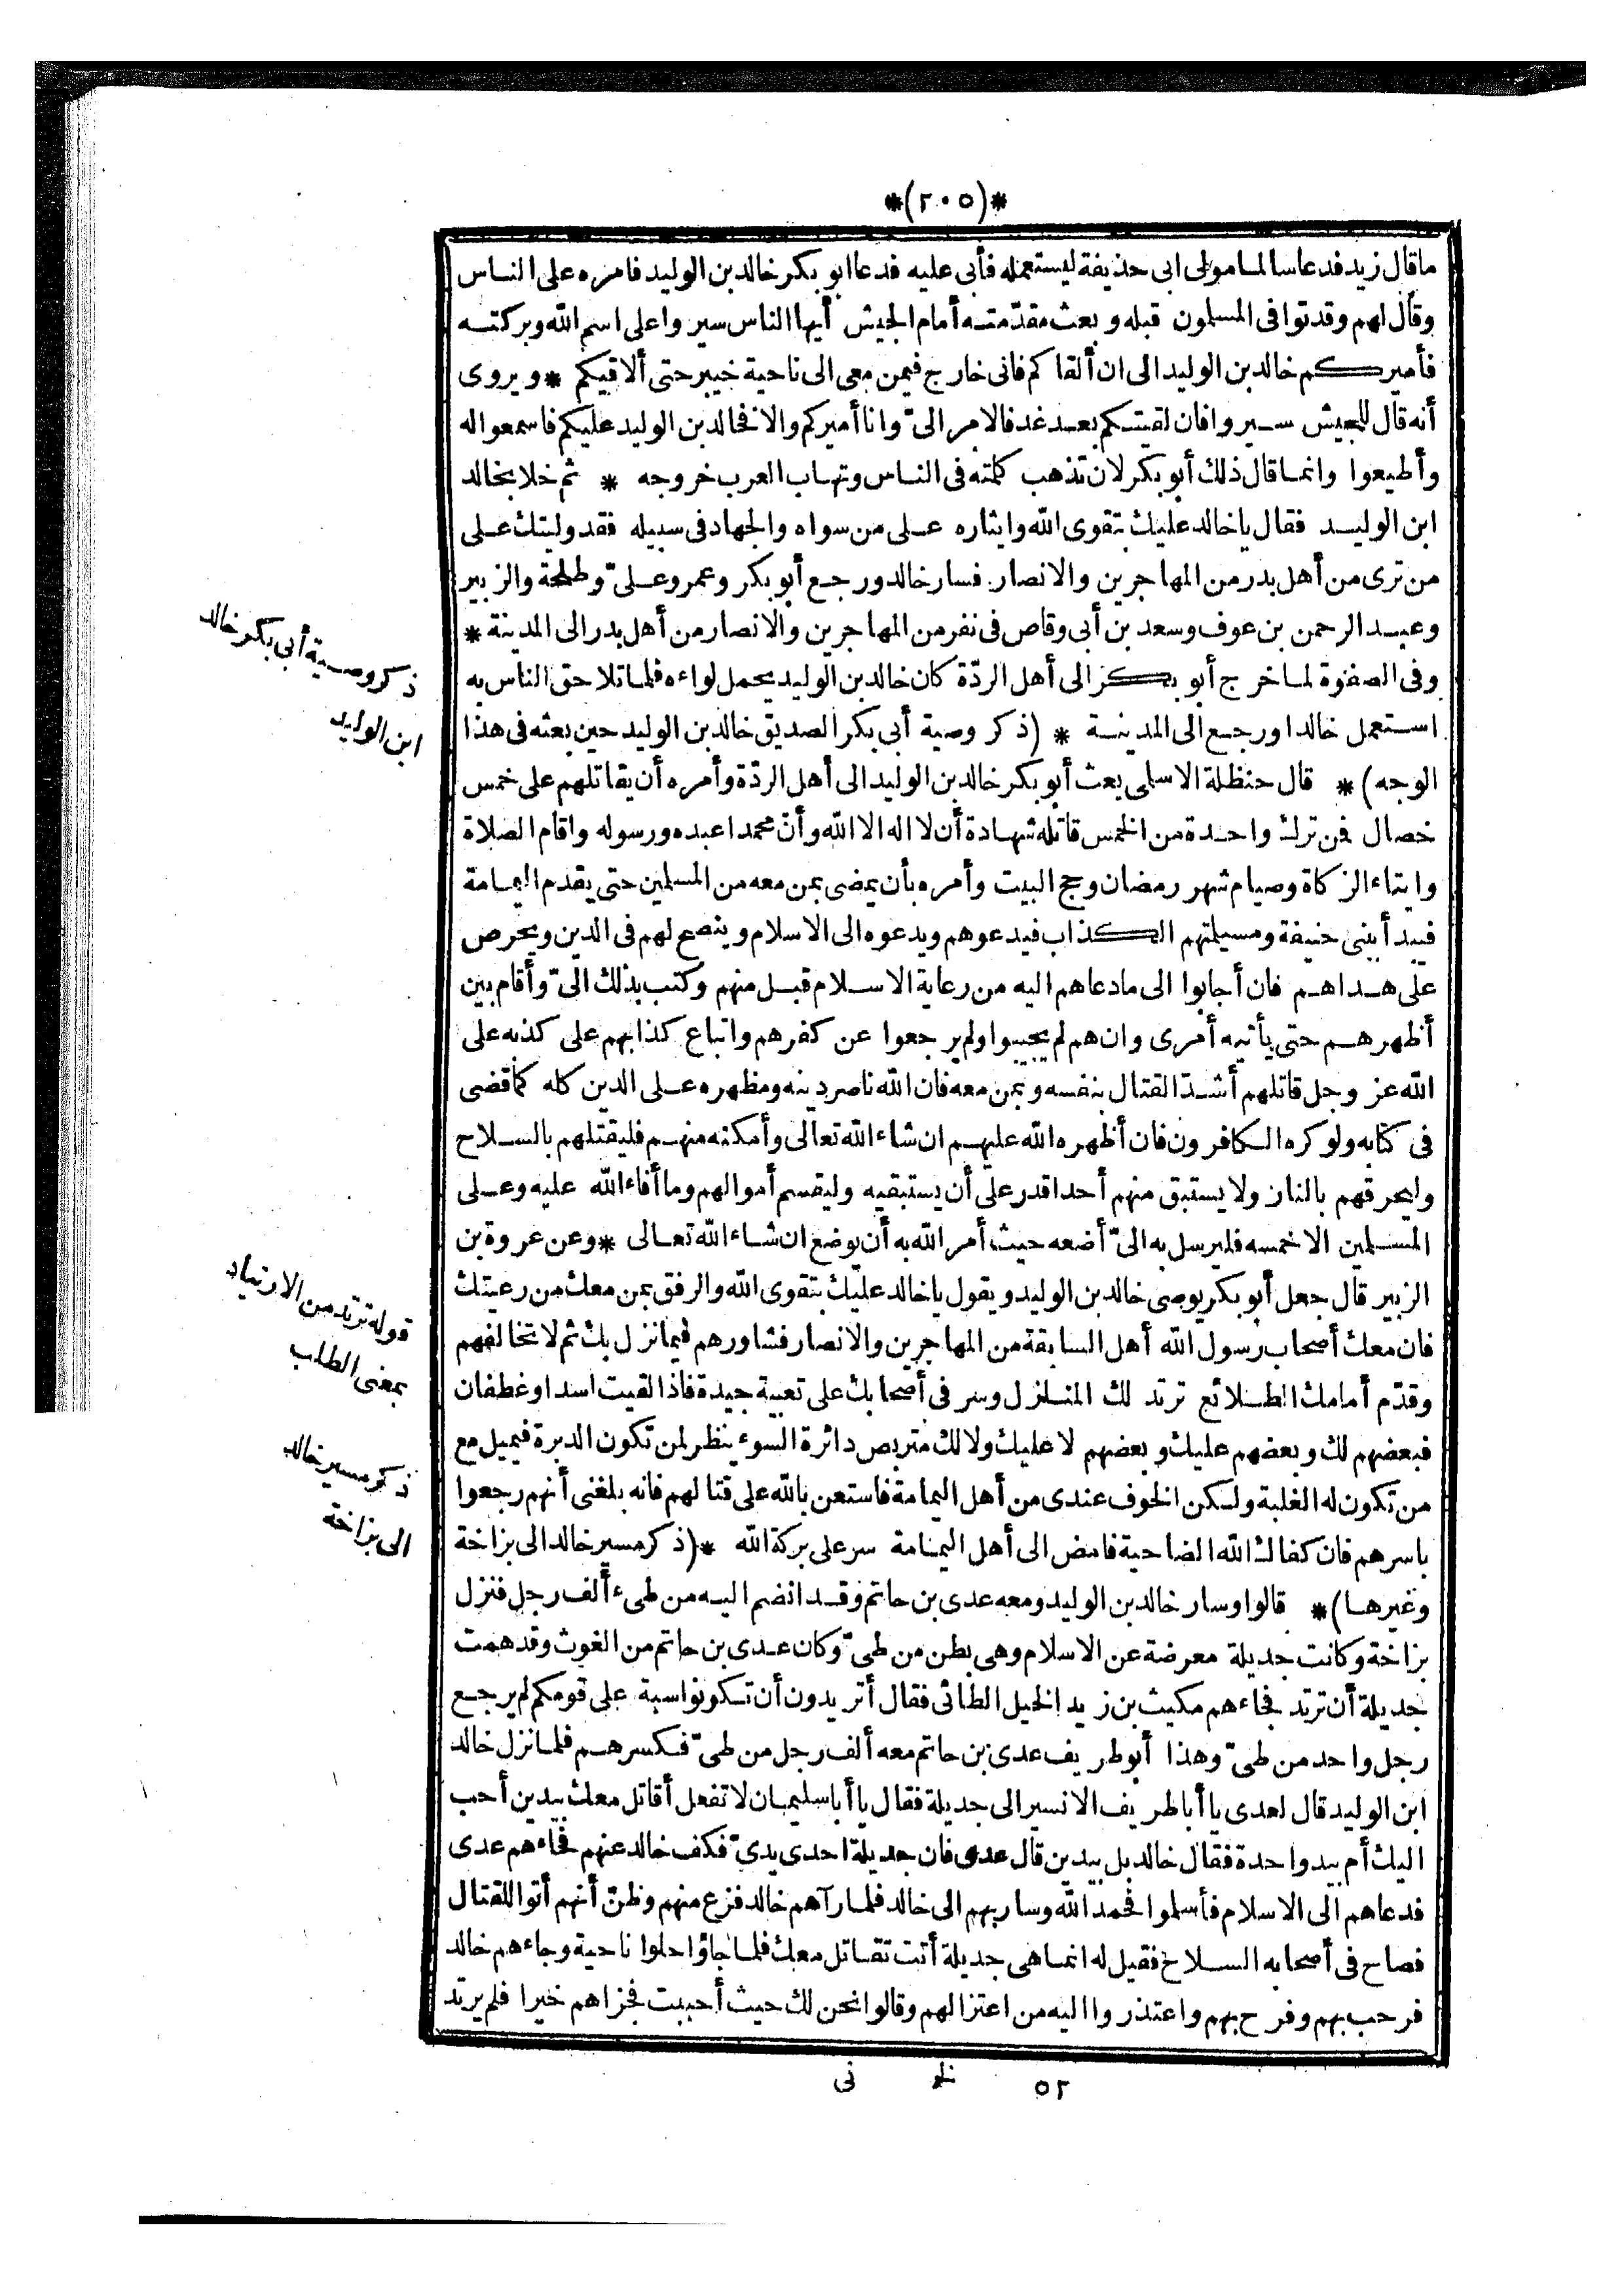 *(٢٠٥)*
ما قال زيد فدعا سالما مولى ابى حذيفة ليستعمله فأبى عليه فدعا ابو بكر خالد بن الوليد فامره على الناس
وقال لهم وقد توا فى المسلمون قبله وبعث مقدّمته أمام الجيش أيها الناس سيروا على اسم الله وبركته
فأميركم خالد بن الوليد الى ان ألقاكم فانى خارج فيمن معى الى ناحية خيبر حتى ألاقيكم * ويروى
أنه قال للجيش سيروا فان لقيتكم بعد غد فالامر الىّ وانا أميركم والا فخالد بن الوليد عليكم فاسمعوا له
وأطيعوا وانما قال ذلك أبو بكر لان تذهب كلمته فى الناس وتهاب العرب خروجه * ثم خلا بخالد
ابن الوليد فقال يا خالد عليك بتقوى الله وايثاره على من سواه والجهاد فى سبيله فقد وليتك على
من ترى من أهل بدر من المهاجرين والانصار فسار خالد ورجع أبو بكر وعمر وعلىّ وطلحة والزبير
وعبد الرحمن بن عوف وسعد بن أبى وقاص فى نفر من المهاجرين والانصار من أهل بدر الى المدينة *
وفى الصفوة لما خرج أبو بكر الى أهل الردّة كان خالد بن الوليد يحمل لواءه فلما تلاحق الناس به
استعمل خالدا ورجع الى المدينة * (ذكر وصية أبى بكر الصديق خالد بن الوليد حين بعثه فى هذا
الوجه) * قال حنظلة الاسلمى بعث أبو بكر خالد بن الوليد الى أهل الردّة وأمره أن يقاتلهم على خمس
خصال فمن ترك واحدة من الخمس قاتله شهادة أن لا اله الا الله وأنّ محمدا عبده ورسوله واقام الصلاة
وايتاء الزكاة وصيام شهر رمضان وحج البيت وأمره بأن يمضى بمن معه من المسلمين حتى يقدم اليمامة
فيبدأ ببنى حنيفة ومسيلمتهم الكذاب فيدعوهم ويدعوه الى الاسلام وينصح لهم فى الدين ويحرص
على هداهم فان أجابوا الى ما دعاهم اليه من رعاية الاسلام قبل منهم وكتب بذلك الىّ وأقام بين
أظهرهم حتى يأتيه أمرى وان هم لم يجيبوا ولم يرجعوا عن كفرهم واتباع كذابهم على كذبه على
الله عز وجل قاتلهم أشدّ القتال بنفسه وبمن معه فان الله ناصر دينه ومظهره على الدين كله كما قضى
فى كتابه ولو كره الكافرون فان أظهره الله عليهم ان شاء الله تعالى وأمكنه منهم فليقتلهم بالسلاح
وليحرقهم بالنار ولا يستبق منهم أحدا قدر على أن يستبقيه وليقسم أموالهم وما أفاء الله عليه وعلى
المسلمين الا خمسه فليرسل به الىّ أضعه حيث أمر الله به أن يوضع ان شاء الله تعالى * وعن عروة بن
الزبير قال جعل أبو بكر يوصى خالد بن الوليد ويقول يا خالد عليك بتقوى الله والرفق بمن معك من رعيتك
فان معك أصحاب رسول الله أهل السابقة من المهاجرين والانصار فشاورهم فيما نزل بك ثم لا تخالفهم
وقدّم أمامك الطلائع ترتد لك المنازل وسر فى أصحابك على تعبية جيدة فاذا لقيت اسدا وغطفان
فبعضهم لك وبعضهم عليك وبعضهم لا عليك ولا لك متربص دائرة السوء ينظر لمن تكون الدبرة فيميل مع
من تكون له الغلبة ولكن الخوف عندى من أهل اليمامة فاستعن بالله على قتالهم فانه بلغنى أنهم رجعوا
باسرهم فان كفاك الله الضاحية فامض الى أهل اليمامة سر على بركة الله *(ذكر مسير خالد الى بزاخة
وغيرها)* قالوا وسار خالد بن الوليد ومعه عدى بن حاتم وقد انضم اليه من طىء ألف رجل فنزل
بزاخة وكانت جديلة معرضة عن الاسلام وهى بطن من طىّ وكان عدى بن حاتم من الغوث وقد همت
جديلة أن ترتد فجاءهم مكيث بن زيد الخيل الطائى فقال أتريدون أن تكونوا سبة على قومكم لم يرجع
رجل واحد من طىّ وهذا أبو طريف عدى بن حاتم معه ألف رجل من طىّ فكسرهم فلما نزل خالد
ابن الوليد قال لعدى يا أبا طريف الا نسير الى جديلة فقال يا أبا سليمان لا تفعل أقاتل معك بيدين أحب
اليك أم بيد واحدة فقال خالد بل بيدين قال عدى فان جديلة احدى يدىّ فكف خالد عنهم فجاءهم عدى
فدعاهم الى الاسلام فأسلموا فحمد الله وسار بهم الى خالد فلما رآهم خالد فزع منهم وظنّ أنهم أتوا للقتال
فصاح فى أصحابه السلاح فقيل له انما هى جديلة أتت تقاتل معك فلما جاؤا حلوا ناحية وجاءهم خالد
فرحب بهم وفرح بهم واعتذروا اليه من اعتزالهم وقالوا نحن لك حيث أحببت فجزاهم خيرا فلم يرتد
ذكر وصية أبى بكر خالد
ابن الوليد
قوله ترتد من الارتياد
بمعنى الطلب
ذكر مسير خالد
الى بزاخة
٥٢ نى